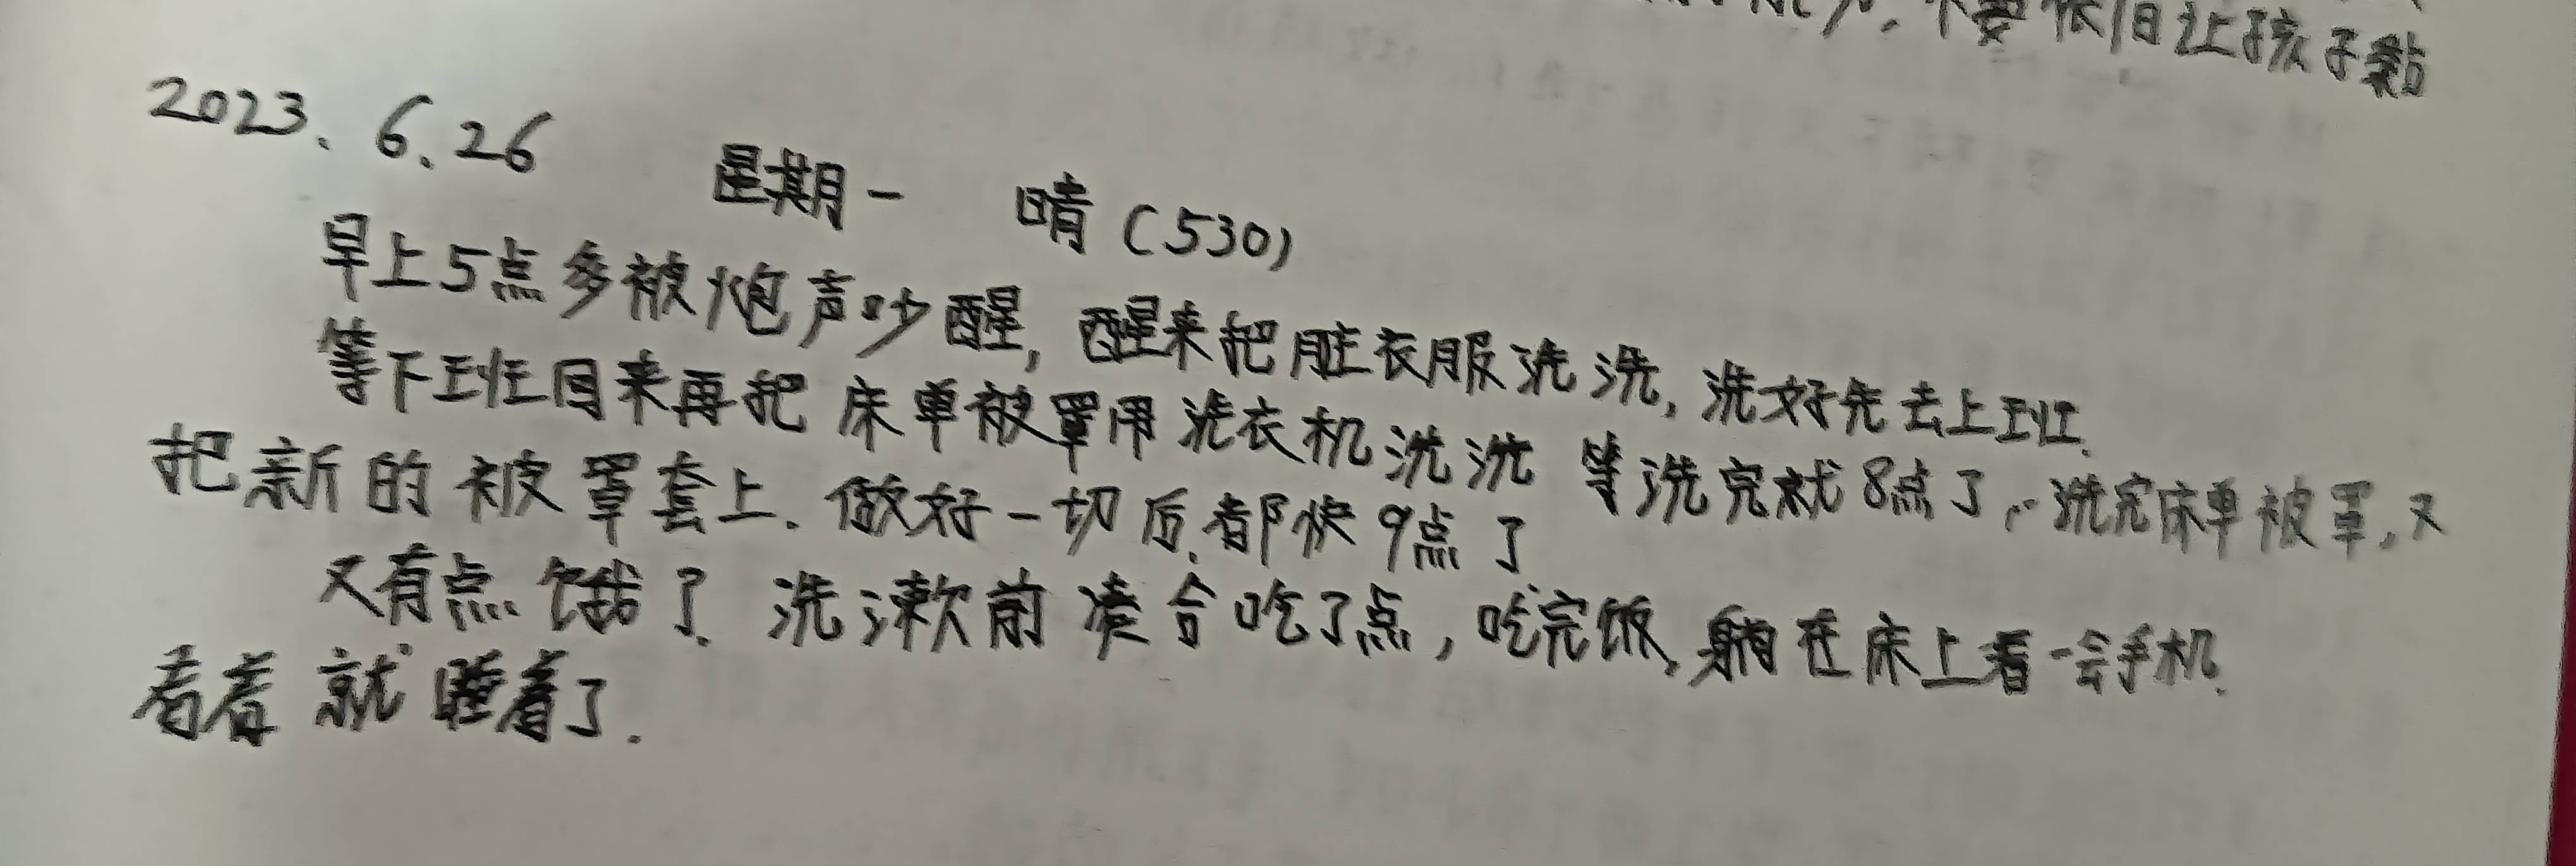 不要依旧让孩子黏
2023.6.26 星期一 晴(530)
早上5点多被炮声吵醒,醒来把脏衣服洗洗,洗好先去上班.
等下班回来再把床单被罩用洗衣机洗洗 等洗完就8点了,洗完床单被罩,又
把新的被罩套上.做好一切后,都快9点了
又有点饿了.洗漱前凑合吃了点,吃完饭,躺在床上看一会手机.
看着就睡着了.